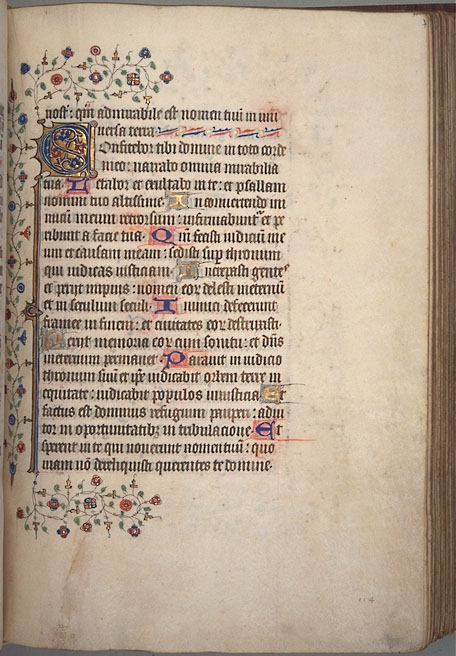 nost(er): qm admirabile est nomen tuū in uni
uersa terra
Confitebor tibi domine in toto corde
meo: narrabo omnia mirabilia
tua. Letabor et exultabo in te: et psallam
nomini tuo altissime. In conuertendo ini
micū meum retrorsum: infirmabunt' et pe
ribunt a facie tua. Qm fecisti iudiciū me
um et causam meam: sedisti sup thronum
qui iudicas iusticiam. Increpasti gentes
et perijt impius: nomen eor delesti in eternū
et in seculum seculi. Inimici defecerunt
framee in finem: et ciuitates eor destruxisti.
Perijt memoria eor cum sonitu: et dn̄s
in eternum permanet. Parauit in iudicio
thronum suū et ipe iudicabit orbem terre in
equitate: iudicabit populos in iusticia. Et
factus est dominus refugium pauperi: adiu
tor in oportunitatibꝫ in tribulacione. Et
sperent in te qui nouerunt nomen tuū: quo
niam nō dereliquisti querentes te domine.